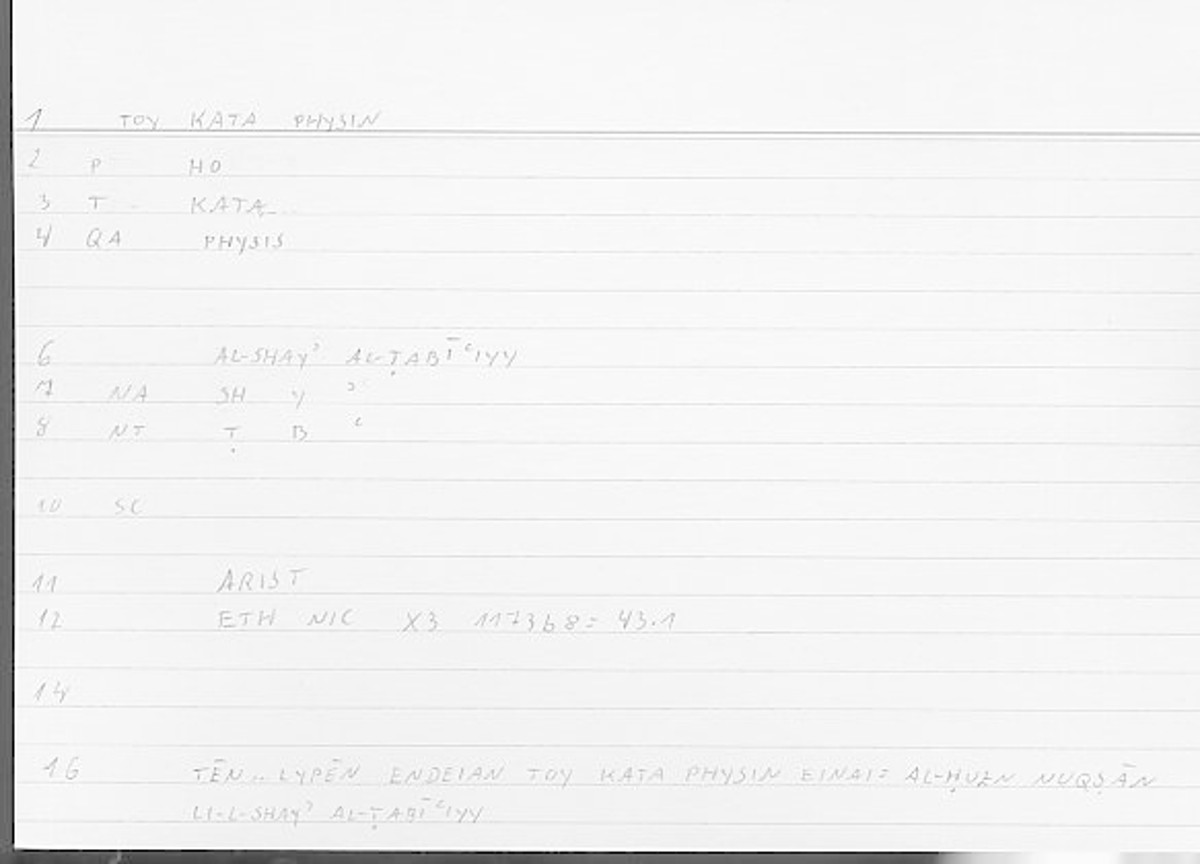 1 TOY KATA PHYSIN
2 P HO
3 T KATA
4 QA PHYSIS
6 AL-SHAYʾ AL-ṬABĪʿIYY
7 NA SH Y ʾ
8 NT Ṭ B ʿ
10 SC
11 ARIST
12 ETH NIC X3 1173b8= 43.1
14
16 TĒN.. LYPĒN ENDEIAN TOY KATA PHYSIN EINAI= AL-ḤUZN NUQṢĀN
LI-L-SHAYʾ AL-ṬABĪʿIYY